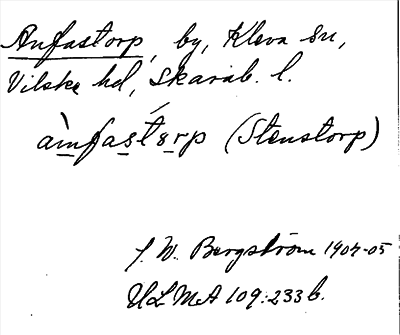 Anfastorp, by, Kleva sn,
Vilske hd, Skarab. l.
àmfastorp (Stenstorp)
J. W. Bergström 1904-05
ULMA 109:233 b.